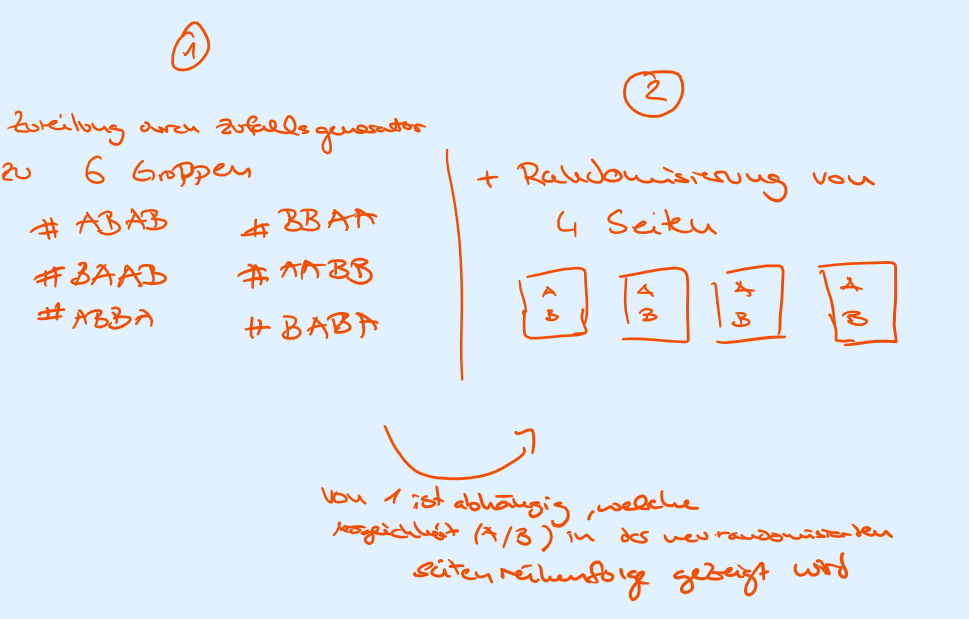 1
Zuteilung durch Zufallsgenerator
zu 6 Gruppen
# ABAB
# BBAA
# BAAB
# AABB
# ABBA
# BABA
2
+ Randomisierung von
4 Seiten
A
B
A
B
A
B
A
B
von 1 ist abhängig, welche
Möglichkeit (A/B) in der neu randomisierten
Seitenreihenfolge gezeigt wird